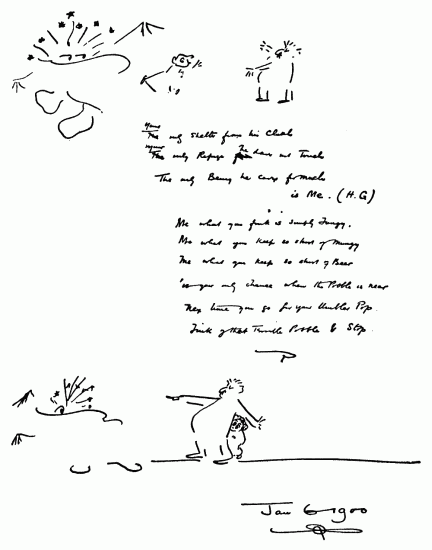 Your
The only Shelter from his Claws
Your
The only Refuge from his Jaws and
The only Being he cares for much
is Me. (H.G)
Me what you is simply
Me what you keep so short of
Me what you keep so short of Beer
is your only chance when the Pobble is near
Next time you go for your Umbler Pop
Think of that Trouble Pobble & Stop.
Jan 6 1900